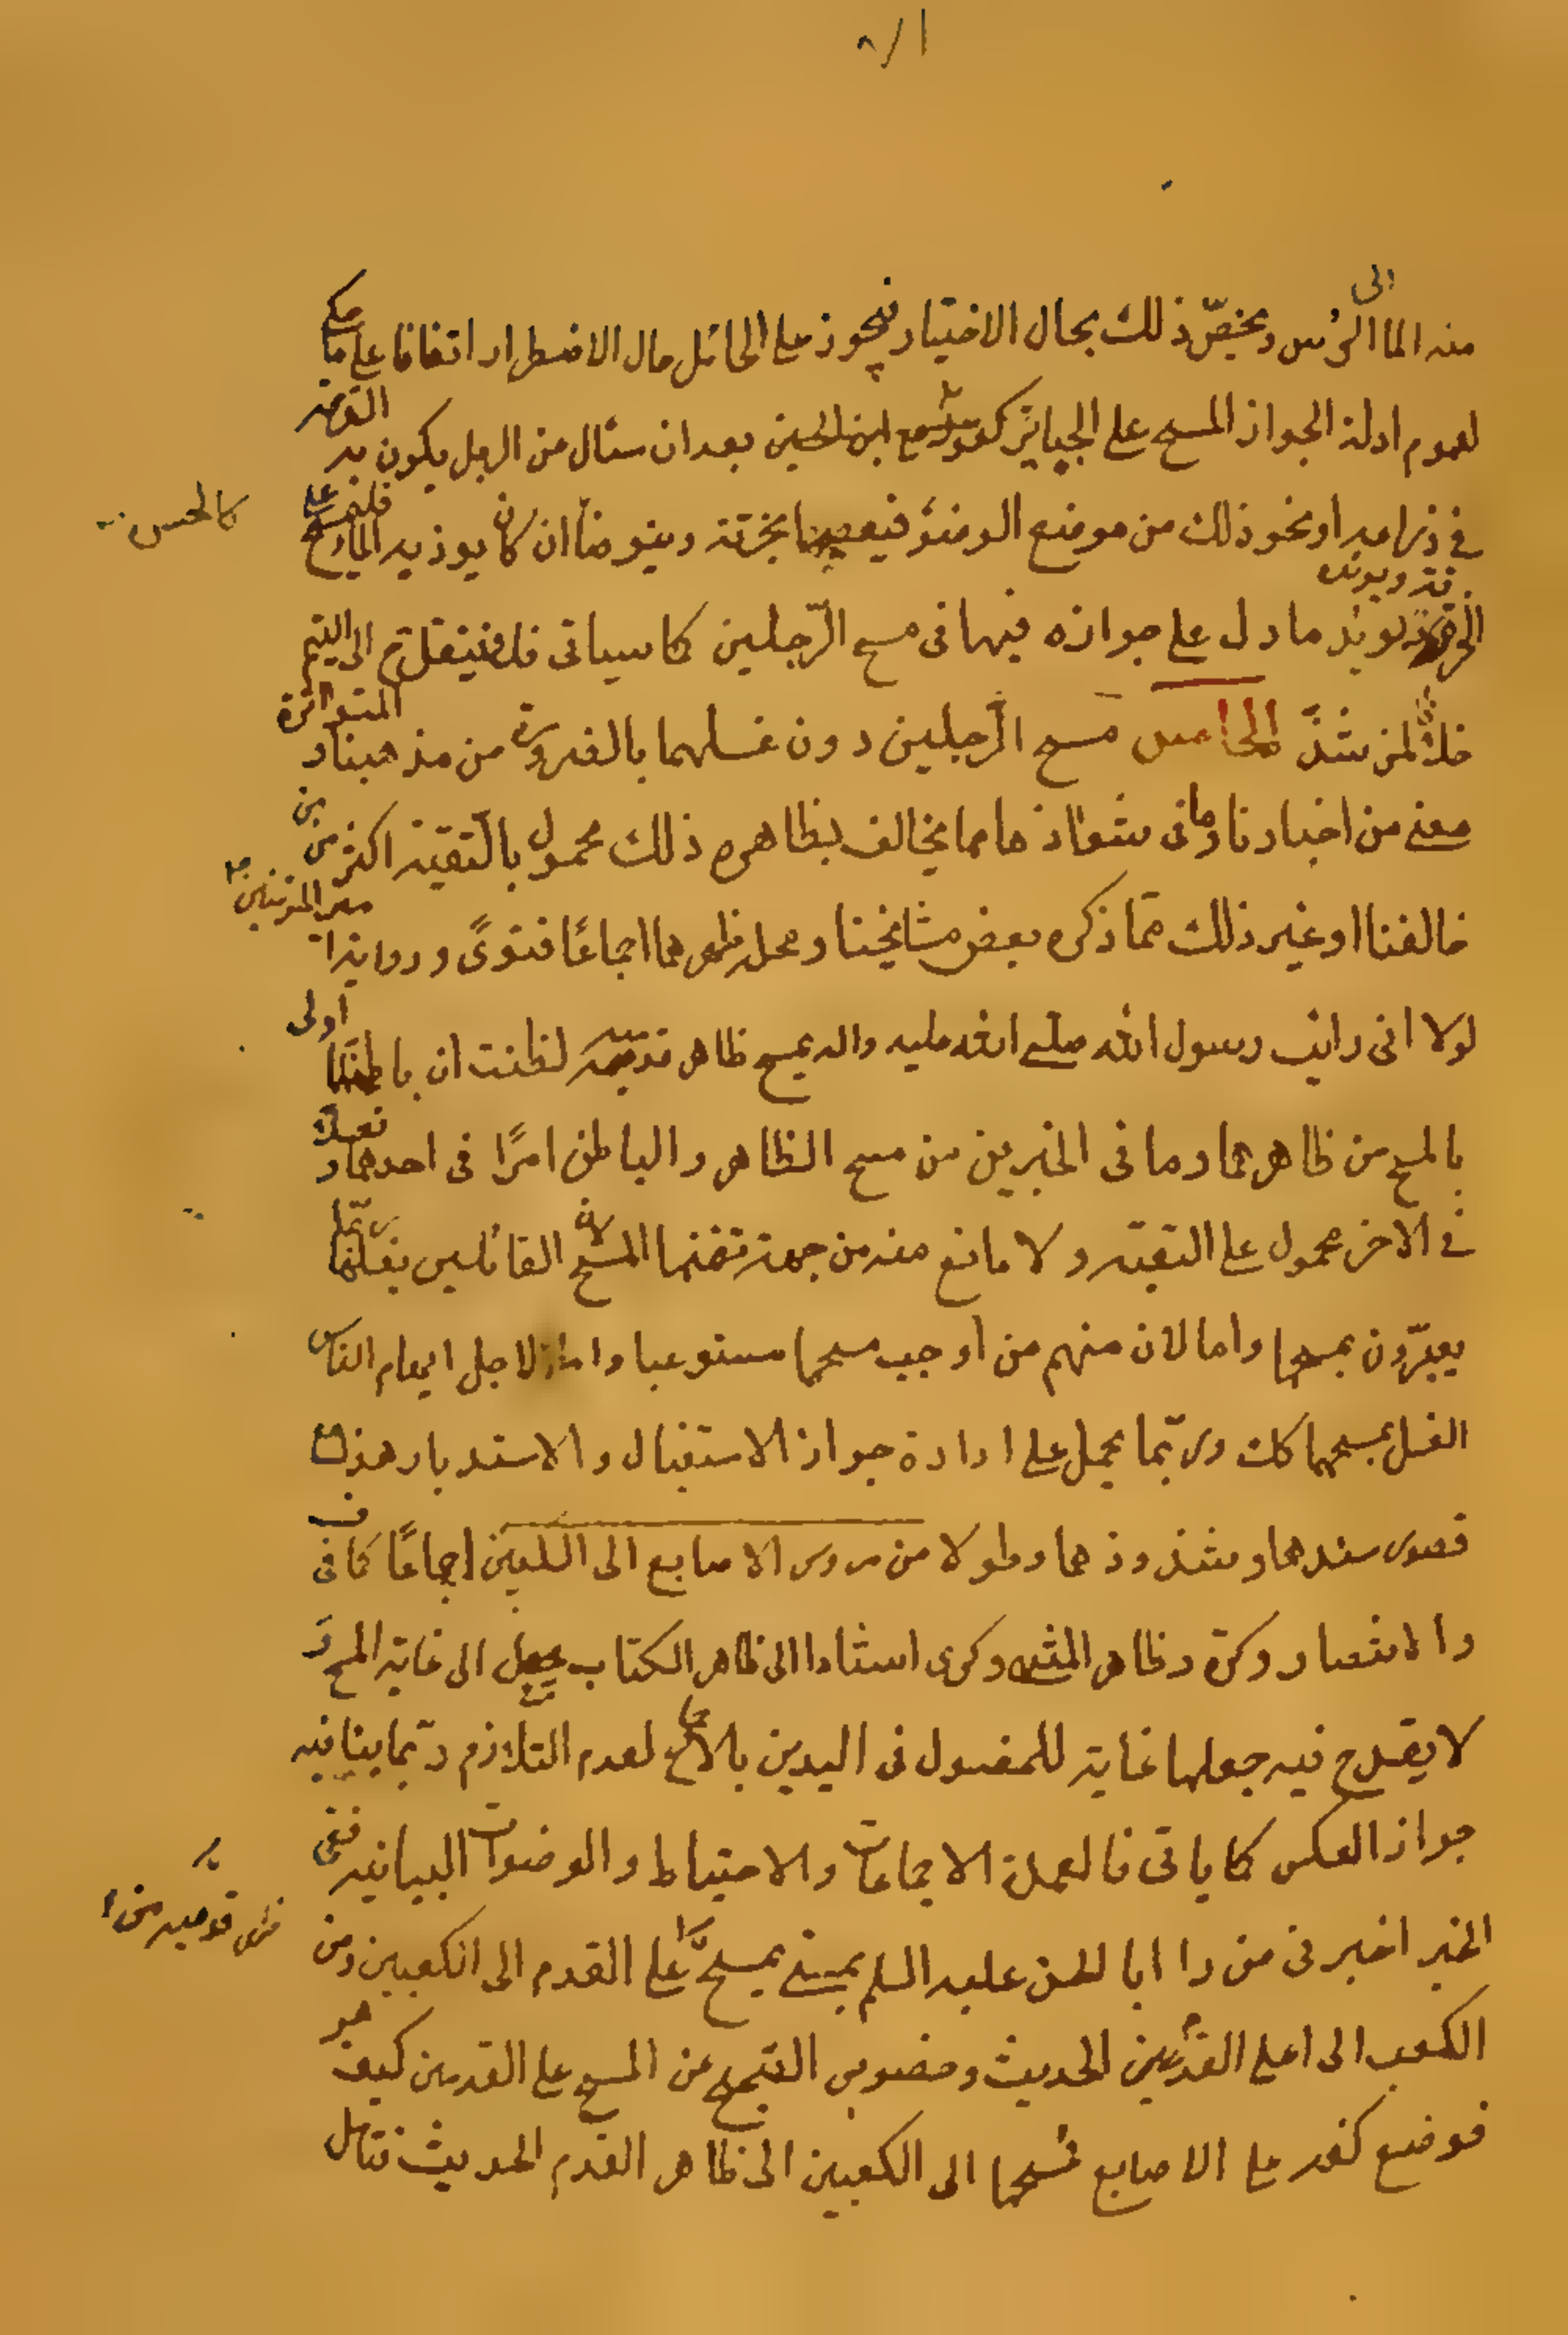 منه الماء الى الرئس ويختص ذلك بحال الاختيار فيجوز على الحائل حال الاضطرار اتفاقا على ما حكى
لعموم ادلة الجواز المسح على الجبائر كقوله مع ابن الحسين بعد ان سئال من الرجل يكون به القرحة
في ذراعه او نحو ذلك من موضع الوضوء فيعصبها بخرقة ويتوضأ ان كان يوذيه الماء فليمسح على
الخرقة ويويده ما دل على جوازه فيها في مسح الرّجلين كما سياتى فلا ينتقل ح الى التيمم
خلافا لمن شذّ الخامس مسح الرّجلين دون غسلهما بالضرورة من مذهبنا و المتواترة
معنى من اخبارنا وما فى شواذها مما يخالف بظاهره ذلك محمول بالتقية اكثر من
خالفنا او غير ذلك مما ذكره بعض مشايخنا ومحله ظهرهما اجماعًا فتوىً ورواية
لولا انى رايت رسول الله صلى الله عليه واله يمسح ظاهر قدميه لظننت ان باطنهما اولى
بالمسح من ظاهرهما وما فى الخبرين من مسح الظاهر والباطن امرًا فى احدهما و فعلا
في الاخر محمول على التقية ولا مانع منه من جهة تضمنها المسح لان القائلين بغسلها ربّما
يعبّرون بمسحها واما لان منهم من اوجب مسحها مستوعبا واما لاجل ايهام الناس
الغسل بمسحهما كك وربّما يحمل على ارادة جواز الاستقبال والاستدبار هذا مع
قصور سندهما وشذوذهما وطولا من رءوس الاصابع الى الكعبين اجماعًا كما فى ف
والانتصار وكرة وظاهر المنتهى وكرى استنادا الى ظاهر الكتاب بجعل الى غاية المسح وَ
لا يقدح فيه جعلها غاية للمغسول فى اليدين بالاجماع لعدم التلازم ربّما ينافيه
جواز العكس كما ياتى فالعمدة الاجماعات والاحتياط والوضوات البيانيه ففى
الخبر اخبرنى من را ابا الحسن عليه السلم بمنى يمسح على القدم الى الكعبين ومن
الكعب الى اعلى القدمين الحديث وخصوص الصحيح عن المسح على القدمين كيف هو
فوضع كفه على الاصابع فمسحها الى الكعبين الى ظاهر القدم الحديث فتامل